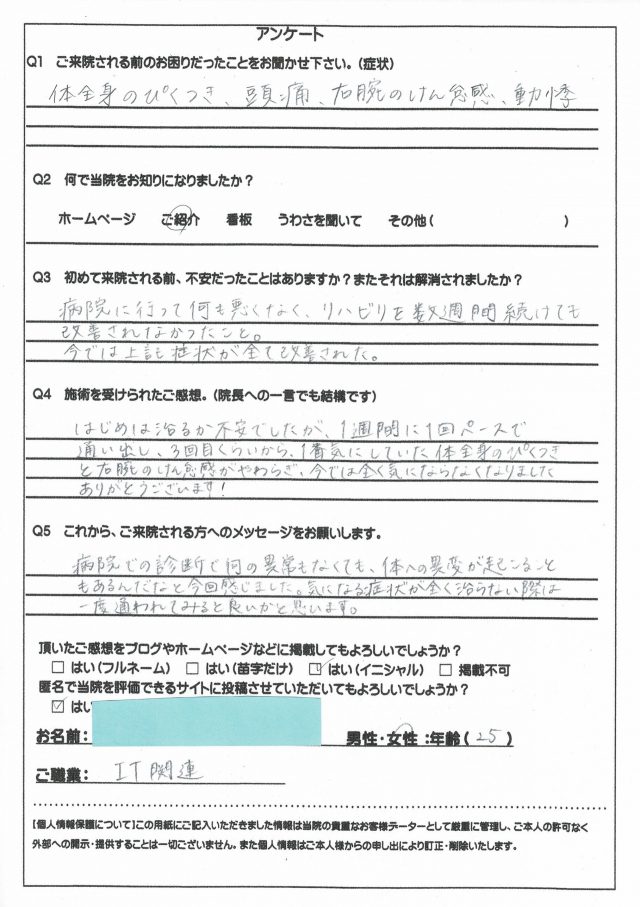 アンケート
Q1 ご来院される前のお困りだったことをお聞かせ下さい。(症状)
体全身のぴくつき、頭痛、右腕のけん怠感、動悸
Q2 何で当院をお知りになりましたか？
ホームページ ご紹介 看板 うわさを聞いて その他( )
Q3 初めて来院される前、不安だったことはありますか？またそれは解消されましたか？
病院に行って何も悪くなく、リハビリを数週間続けても
改善されなかったこと。
今では上記症状が全て改善された。
Q4 施術を受けられたご感想。(院長への一言でも結構です)
はじめは治るか不安でしたが、1週間に1回ペースで
通い出し、3回目くらいから、1番気にしていた体全身のぴくつき
と右腕のけん怠感がやわらぎ、今では全く気にならなくなりました
ありがとうございます！
Q5 これから、ご来院される方へのメッセージをお願いします。
病院での診断で何の異常もなくても、体への異変が起こること
もあるんだなと今回感じました。気になる症状が全く治らない際は
一度通われてみると良いかと思います。
頂いたご感想をブログやホームページなどに掲載してもよろしいでしょうか？
□ はい(フルネーム) □ はい(苗字だけ) ☑ はい(イニシャル) □ 掲載不可
匿名で当院を評価できるサイトに投稿させていただいてもよろしいでしょうか？
☑ はい
お名前： 男性・女性 ：年齢( 25 )
ご職業： IT関連
[個人情報保護について]この用紙にご記入いただきました情報は当院の貴重なお客様データーとして厳重に管理し、ご本人の許可なく
外部への開示・提供することは一切ございません。また個人情報はご本人様からの申し出により訂正・削除いたします。